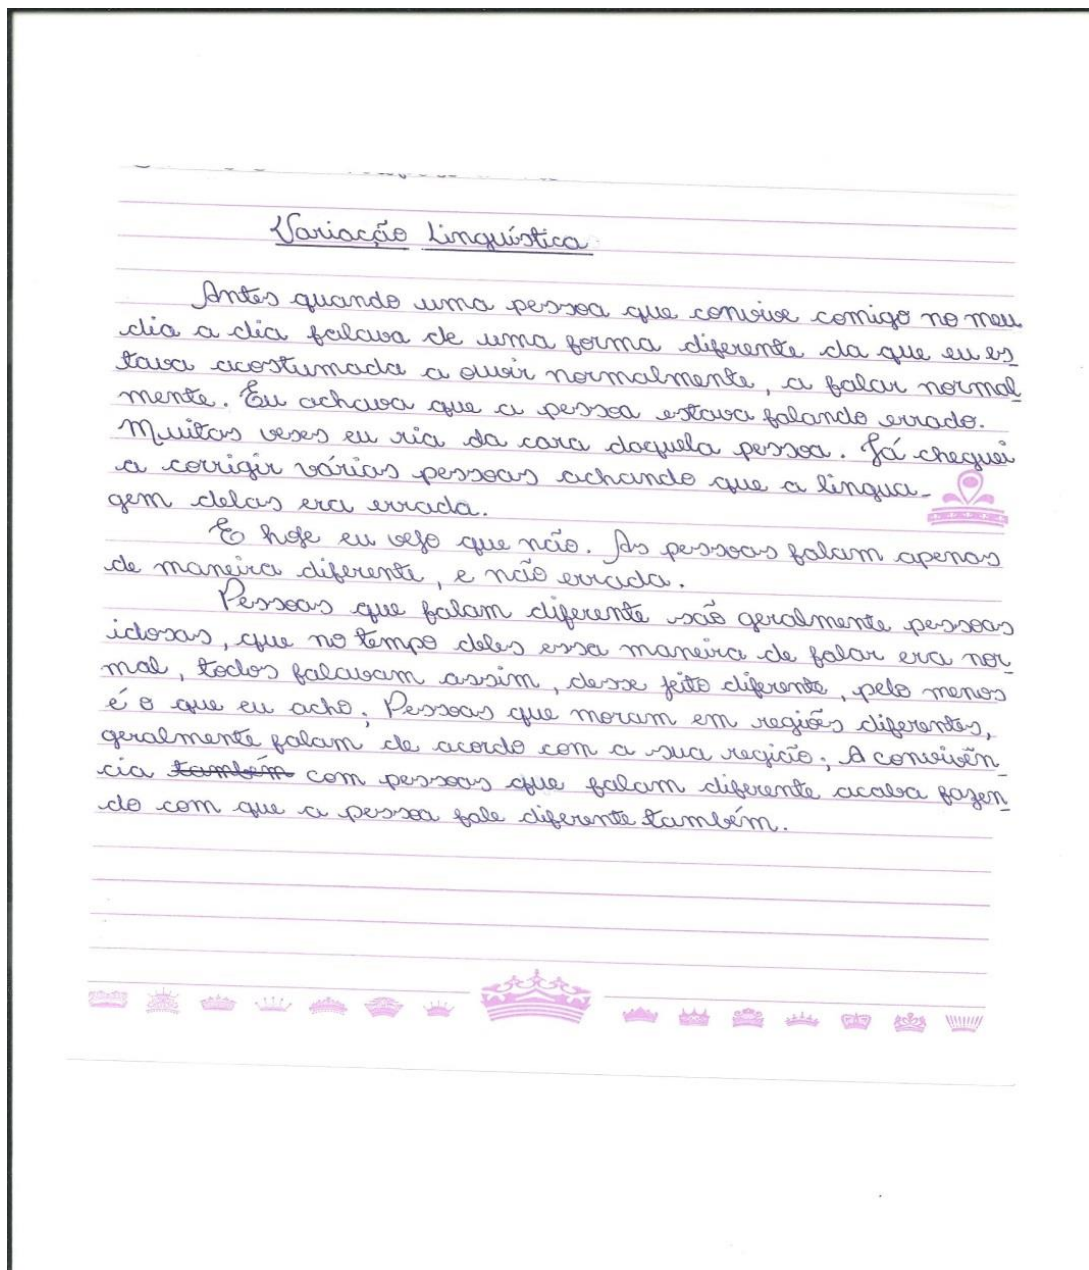 Variação Linguística
Antes quando uma pessoa que convive comigo no meu
dia a dia falava de uma forma diferente da que eu es
tava acostumada a ouvir normalmente, a falar normal-
mente. Eu achava que a pessoa estava falando errado.
Muitas vezes eu ria da cara daquela pessoa. Já cheguei
a corrigir várias pessoas achando que a lingua-
gem delas era errada.
E hoje eu vejo que não. As pessoas falam apenas
de maneira diferente, e não errada.
Pessoas que falam diferente são geralmente pessoas
idosas, que no tempo deles essa maneira de falar era nor
mal, todos falavam assim, desse jeito diferente, pelo menos
é o que eu acho; Pessoas que moram em regiões diferentes,
geralmente falam de acordo com a sua região; A convivên-
cia também com pessoas que falam diferente acaba fazen-
do com que a pessoa fale diferente também.